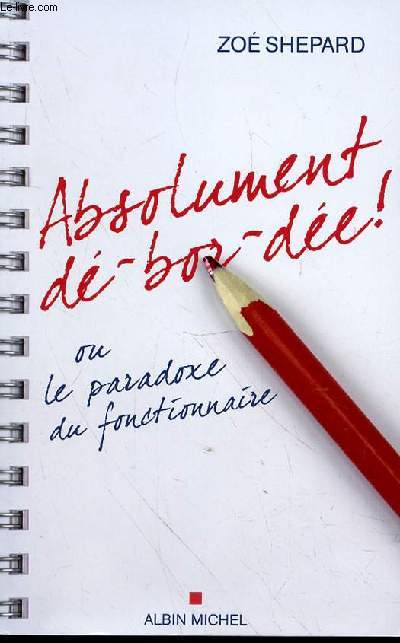 Le-livre.com
ZOÉ SHEPARD
Absolument
dé-bor-dée!
ou
le paradoxe
du fonctionnaire
ALBIN MICHEL